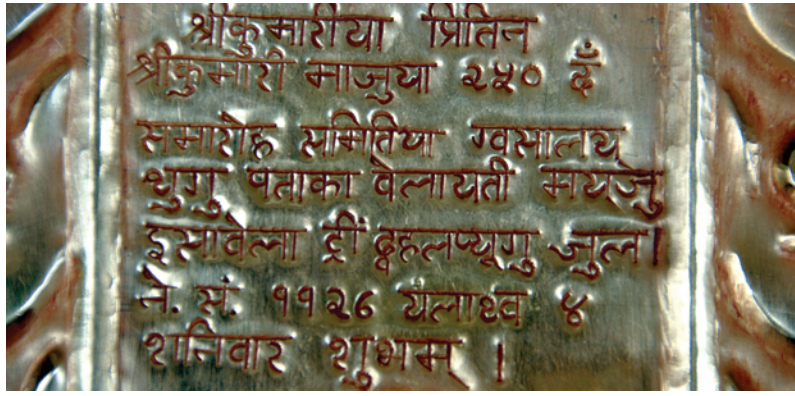 श्रीकुमारीया प्रितिन
श्रीकुमारी माजुया २५० दँ
समारोह समितिया ग्वसालय्
थुगु पताका वेलायती मय्जु
इसावेला द्रीं द्वहलप्यूगु जुल।
ने. सं. ११२८ यलाथ्व ४
शनिवार शुभम् ।